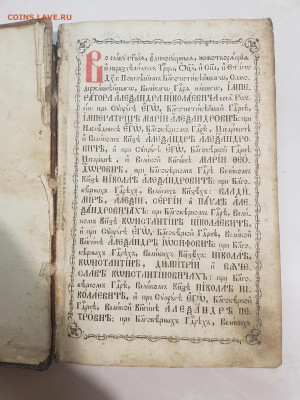 COINSS.LAVE.RU
Во славу ст҃ыѧ, є҆диносꙋ́щныѧ, животворѧ́щїѧ
и҆ нераздѣ́лимыѧ Трⷪ҇цы, Ѻ҆ц҃а̀, и҆ Сн҃а, и҆ Ст҃а́гѡ
Дх҃а: Повелѣ́нїемъ Бл҃гочести́вѣйшагѡ, Само-
держа́внѣйшагѡ, Вели́кагѡ Гдⷭ҇рѧ на́шегѡ, І҆МПЕ-
РА́ТОРА А҆ЛЕѮА́НДРА НІКОЛА́ЕВИЧА всеѧ̀
при Сꙋпрꙋ́гѣ Є҆ГѠ̀, Бл҃гочести́вѣйшей Гдⷭ҇рнѣ
І҆МПЕРАТРИ́ЦѢ МАРІ́И А҆ЛЕѮА́НДРОВНѢ: при
Наслѣ́дникѣ Є҆ГѠ̀, Бл҃говѣ́рномъ Гдⷭ҇рѣ, Цесаре́вичѣ
и҆ Вели́комъ Кнѧ́зѣ А҆ЛЕѮА́НДРѢ А҆ЛЕѮА́НДРО-
ВИЧѢ, и҆ при Сꙋпрꙋ́гѣ Є҆ГѠ̀, Бл҃говѣ́рной Гдⷭ҇рнѣ
Цесаре́внѣ, и҆ Вели́кой Кнѧги́нѣ МАРІ́И ѲЕО-
ДѠ́РОВНѢ: при Бл҃говѣ́рномъ Гдⷭ҇рѣ, Вели́-
комъ Кнѧ́зѣ НІКОЛА́Ѣ А҆ЛЕѮА́НДРОВИЧѢ: при
Бл҃говѣ́рныхъ Гдⷭ҇рѣхъ, Вели́кихъ Кнѧзе́хъ: ВЛАДИ́-
МІРѢ, А҆ЛЕѮІ́И, СЕ́РГІИ и҆ ПА́ѴЛѢ А҆ЛЕ-
ѮА́НДРОВИЧАХЪ: при Бл҃говѣ́рномъ Гдⷭ҇рѣ, Вели́-
комъ Кнѧ́зѣ КѠНСТАНТІ́НѢ НІКОЛА́ЕВИЧѢ,
и҆ при Сꙋпрꙋ́гѣ Є҆ГѠ̀, Бл҃говѣ́рной Гдⷭ҇рнѣ, Вели́-
кой Кнѧги́нѣ А҆ЛЕѮА́НДРѢ І҆Ѡ́СИФОВНѢ: при Бл҃го-
вѣ́рныхъ Гдⷭ҇рѣхъ, Вели́кихъ Кнѧзе́хъ: НІКОЛА́Ѣ,
КѠНСТАНТІ́НѢ, ДИМИ́ТРІИ и҆ ВѦЧЕ-
СЛА́ВѢ КѠНСТАНТІ́НОВИЧАХЪ: при Бл҃говѣ́рномъ
Гдⷭ҇рѣ, Вели́комъ Кнѧ́зѣ НІКОЛА́Ѣ НІ-
КОЛА́ЕВИЧѢ, и҆ при Сꙋпрꙋ́гѣ Є҆ГѠ̀, Бл҃говѣ́рной
Гдⷭ҇рнѣ, Вели́кой Кнѧги́нѣ А҆ЛЕѮА́НДРѢ
ПЕТРО́ВНѢ: при Бл҃говѣ́рныхъ Гдⷭ҇рѣхъ, Вели́кихъ